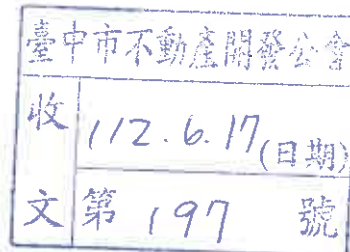 臺中市不動產開發公會
收 112.6.17(日期)
文 第 197 號